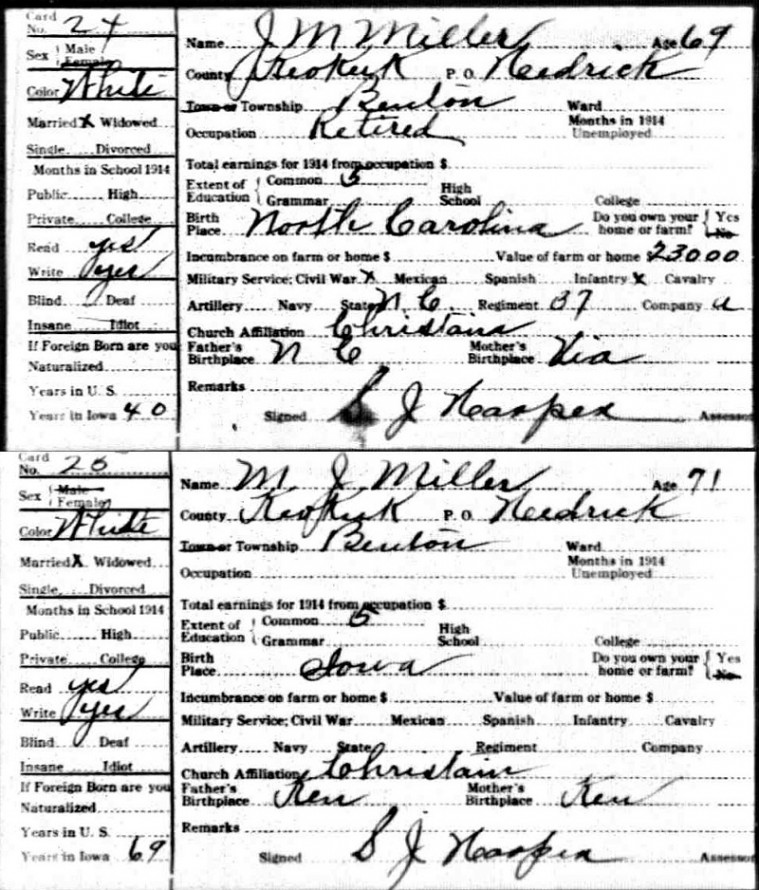 Card
No. 24
Sex { Male
Female
Color White
Married X Widowed
Single Divorced
Months in School 1914
Public High
Private College
Read yes
Write yes
Blind Deaf
Insane Idiot
If Foreign Born are you
Naturalized
Years in U. S.
Years in Iowa 40
Name J M Miller Age 69
County Keokuk P. O. Hedrick
Town or Township Benton Ward
Occupation Retired Months in 1914 Unemployed
Total earnings for 1914 from occupation $
Extent of Education { Common 5
Grammar High School College
Birth Place North Carolina Do you own your home or farm? { Yes No
Incumbrance on farm or home $ Value of farm or home 2300 00
Military Service; Civil War x Mexican Spanish Infantry x Cavalry
Artillery Navy State N C Regiment 37 Company a
Church Affiliation Christians
Father's Birthplace N C Mother's Birthplace Via
Remarks
Signed S J Harper Assessor
Card
No. 25
Sex { Male
Female
Color White
Married X Widowed
Single Divorced
Months in School 1914
Public High
Private College
Read yes
Write yes
Blind Deaf
Insane Idiot
If Foreign Born are you
Naturalized
Years in U. S.
Years in Iowa 69
Name M J Miller Age 71
County Keokuk P. O. Hedrick
Town or Township Benton Ward
Occupation Months in 1914 Unemployed
Total earnings for 1914 from occupation $
Extent of Education { Common 5
Grammar High School College
Birth Place Iowa Do you own your home or farm? { Yes No
Incumbrance on farm or home $ Value of farm or home $
Military Service; Civil War Mexican Spanish Infantry Cavalry
Artillery Navy State Regiment Company
Church Affiliation Christain
Father's Birthplace Ken Mother's Birthplace Ken
Remarks
Signed S J Harper Assessor